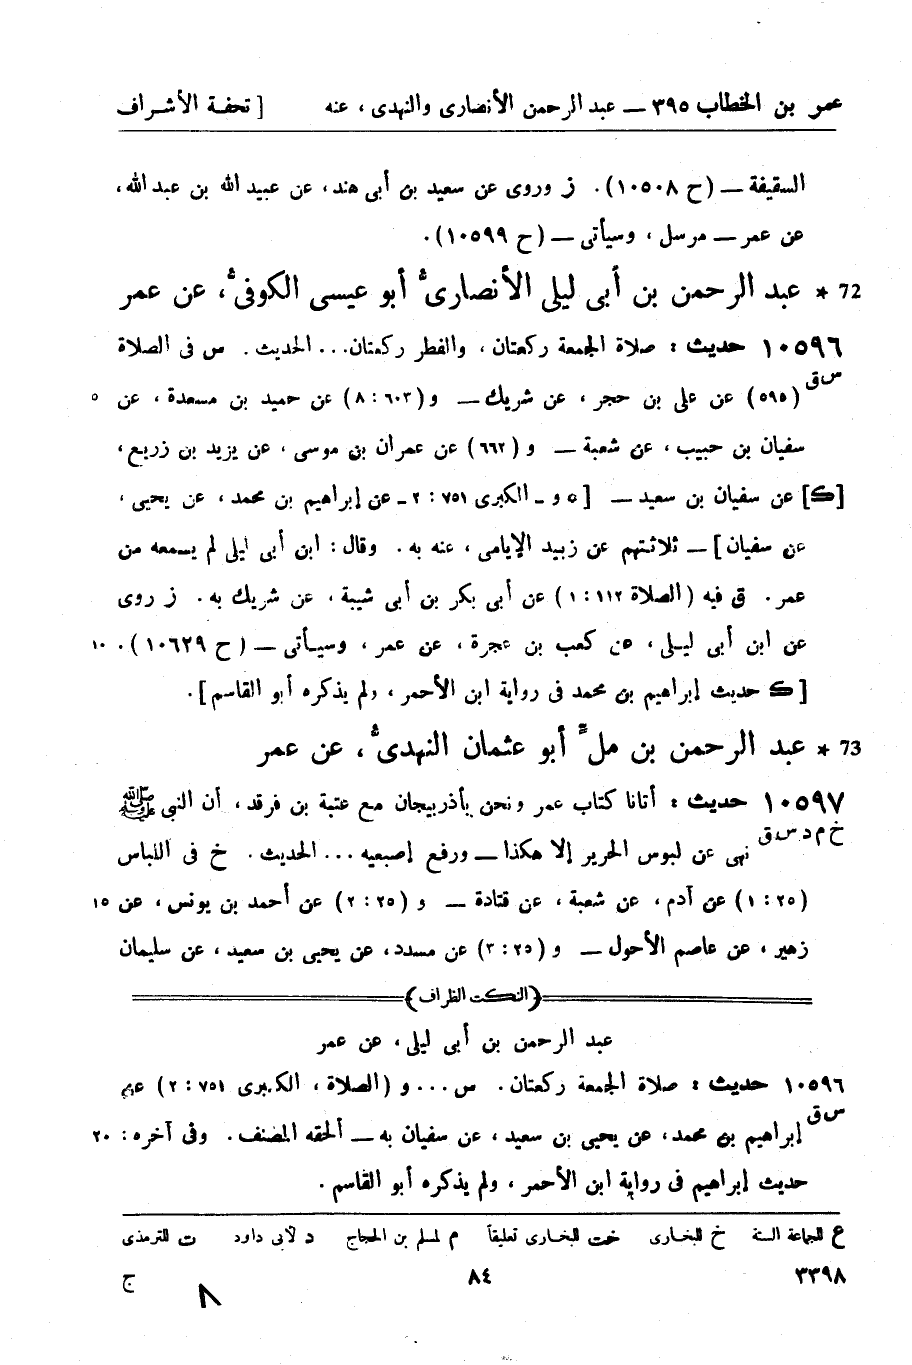 عمر بن الخطاب ٣٩٥ ــ عبد الرحمن الأنصارى والنهدى ، عنه [ تحفة الأشراف
السقيفة ــ (ح ١٠٥٠٨). ز وروى عن سعيد بن أبى هند، عن عبيد الله بن عبد الله،
عن عمر ــ مرسل ، وسيأتى ــ (ح ١٠٥٩٩).
72 * عبد الرحمن بن أبى ليلى الأنصارىُّ أبو عيسى الكوفىُّ، عن عمر
١٠٥٩٦ حديث : صلاة الجمعة ركعتان ، والفطر ركعتان... الحديث . س فى الصلاة
س ق (٥٩٥) عن على بن حجر ، عن شريك ــ و(٦٠٣ : ٨) عن حميد بن مسعدة ، عن ٥
سفيان بن حبيب ، عن شعبة ــ و (٦٦٢) عن عمران بن موسى ، عن يزيد بن زريع،
[ك] عن سفيان بن سعيد ــ [ ٥ و ـ الكبرى ٧٥١ : ٢ ـ عن إبراهيم بن محمد ، عن يحيى ،
عن سفيان] ــ ثلاثتهم عن زبيد الإيامى ، عنه به . وقال : ابن أبى ليلى لم يسمعه من
عمر . ق فيه (الصلاة ١١٢ : ١) عن أبى بكر بن أبى شيبة ، عن شريك به . ز روى
عن ابن أبى ليـلى ، عن كعب بن عجرة ، عن عمر ، وسيـأتى ــ ( ح ١٠٦٢٩) . ١٠
[ك حديث إبراهيم بن محمد فى رواية ابن الأحمر ، ولم يذكره أبو القاسم].
73 * عبد الرحمن بن ملٍّ أبو عثمان النهدىُّ ، عن عمر
١٠٥٩٧ حديث : أتانا كتاب عمر ونحن بأذربيجان مع عتبة بن فرقد ، أن النبى ﷺ
خ م د س ق نهى عن لبوس الحرير إلا هكذا ــ ورفع إصبعيه ... الحديث . خ فى اللباس
(٢٥ : ١) عن آدم ، عن شعبة ، عن قتادة ــ و (٢٥ : ٢) عن أحمد بن يونس ، عن ١٥
زهير ، عن عاصم الأحول ــ و (٢٥ : ٣) عن مسدد، عن يحيى بن سعيد ، عن سليمان
(النكت الظراف)
عبد الرحمن بن أبى ليلى ، عن عمر
١٠٥٩٦ حديث : صلاة الجمعة ركعتان . س ... و (الصلاة ، الكبرى ٧٥١ : ٢) عن
س ق إبراهيم بن محمد، عن يحيى بن سعيد ، عن سفيان به ــ ألحقه المصنف . وفى آخره : ٢٠
حديث إبراهيم فى رواية ابن الأحمر ، ولم يذكره أبو القاسم .
ع للجماعة الستة خ للبخارى خت للبخارى تعليقاً م لمسلم بن الحجاج د لأبى داود ت للترمذى
٣٣٩٨ ٨٤ ج
٨